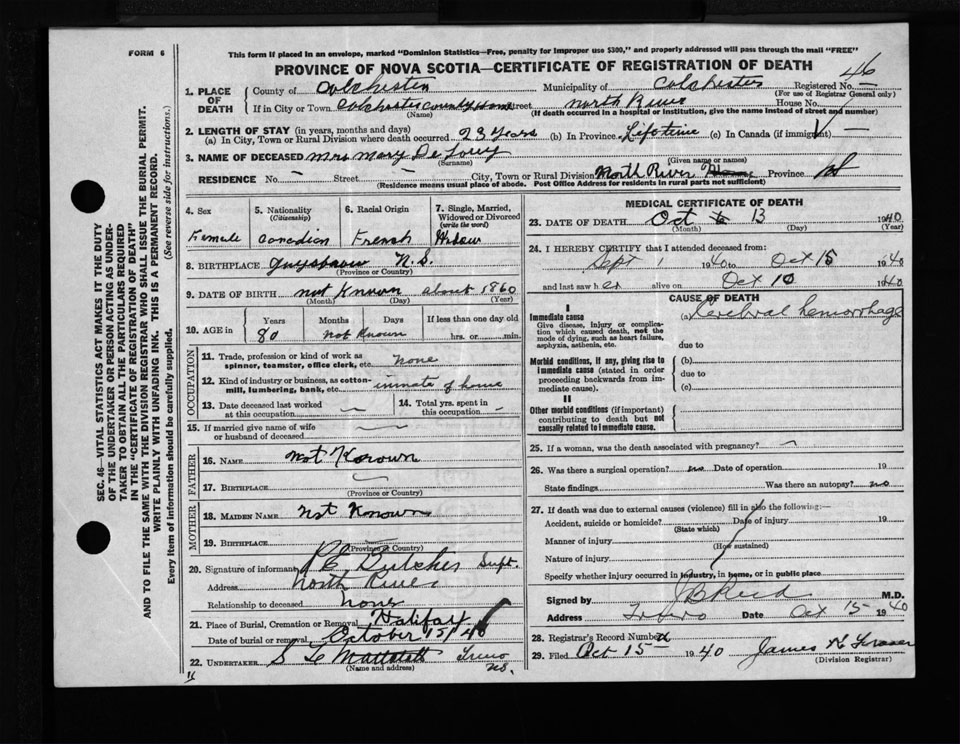 FORM 6
This form if placed in an envelope, marked "Dominion Statistics—Free, penalty for improper use $300," and properly addressed will pass through the mail "FREE"
PROVINCE OF NOVA SCOTIA—CERTIFICATE OF REGISTRATION OF DEATH
1. PLACE OF DEATH
County of Colchester Municipality of Colchester Registered No. 46
(For use of Registrar General only)
If in City or Town Colchester County Home street North River House No.
(Name) (If death occurred in a hospital or institution, give the name instead of street and number)
2. LENGTH OF STAY (in years, months and days)
(a) In City, Town or Rural Division where death occurred 23 Years (b) In Province Lifetime (c) In Canada (if immigrant) —
3. NAME OF DECEASED Mrs Mary De
(Surname) (Given name or names)
RESIDENCE No. – Street – City, Town or Rural Division North River Province NS
(Residence means usual place of abode. Post Office Address for residents in rural parts not sufficient)
4. Sex
Female
5. Nationality
(Citizenship)
Canadian
6. Racial Origin
French
7. Single, Married, Widowed or Divorced
(write the word)
Widow
8. BIRTHPLACE Guysboro N.S.
(Province or Country)
9. DATE OF BIRTH not Known about 1860
(Month) (Day) (Year)
10. AGE in
Years Months Days If less than one day old
80 not Known hrs. or min.
OCCUPATION
11. Trade, profession or kind of work as spinner, teamster, office clerk, etc. None
12. Kind of industry or business, as cotton-mill, lumbering, bank, etc. inmate of home
13. Date deceased last worked at this occupation
14. Total yrs. spent in this occupation
15. If married give name of wife or husband of deceased
FATHER
16. NAME Not Known
17. BIRTHPLACE
(Province or Country)
MOTHER
18. MAIDEN NAME Not Known
19. BIRTHPLACE
(Province or Country)
20. Signature of informant Supt.
Address North River
Relationship to deceased none
21. Place of Burial, Cremation or Removal Halifax
Date of burial or removal October 15/40
22. UNDERTAKER Truro
(Name and address) NS.
16
MEDICAL CERTIFICATE OF DEATH
23. DATE OF DEATH Oct 13 1940
(Month) (Day) (Year)
24. I HEREBY CERTIFY that I attended deceased from:
Sept 1 1940 to Oct 15 1940
and last saw her alive on Oct 10 1940
CAUSE OF DEATH
I
Immediate cause
Give disease, injury or complication which caused death, not the mode of dying, such as heart failure, asphyxia, asthenia, etc.
(a) Cerebral hemorrhage
due to
Morbid conditions, if any, giving rise to immediate cause (stated in order proceeding backwards from immediate cause).
(b)
due to
(c)
II
Other morbid conditions (if important) contributing to death but not causally related to immediate cause.
25. If a woman, was the death associated with pregnancy?
26. Was there a surgical operation? no Date of operation 19
State findings Was there an autopsy? no
27. If death was due to external causes (violence) fill in also the following:—
Accident, suicide or homicide? Date of injury 19
(State which)
Manner of injury
(How sustained)
Nature of injury
Specify whether injury occurred in industry, in home, or in public place
Signed by J B Reid M.D.
Address Truro Date Oct 15 1940
28. Registrar's Record Number
29. Filed Oct 15 1940 James
(Division Registrar)
SEC. 46—VITAL STATISTICS ACT MAKES IT THE DUTY
OF THE UNDERTAKER OR PERSON ACTING AS UNDER-
TAKER TO OBTAIN ALL THE PARTICULARS REQUIRED
IN THE "CERTIFICATE OF REGISTRATION OF DEATH"
AND TO FILE THE SAME WITH THE DIVISION REGISTRAR WHO SHALL ISSUE THE BURIAL PERMIT.
WRITE PLAINLY WITH UNFADING INK. THIS IS A PERMANENT RECORD.
Every item of information should be carefully supplied. (See reverse side for instructions.)